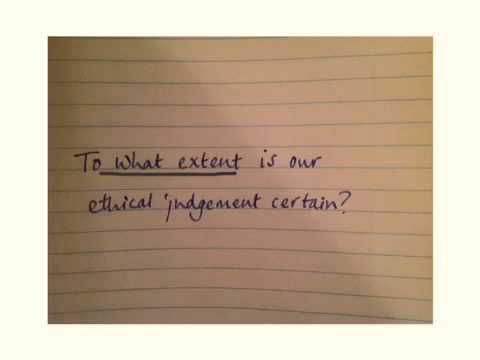 To what extent is our
ethical judgement certain?